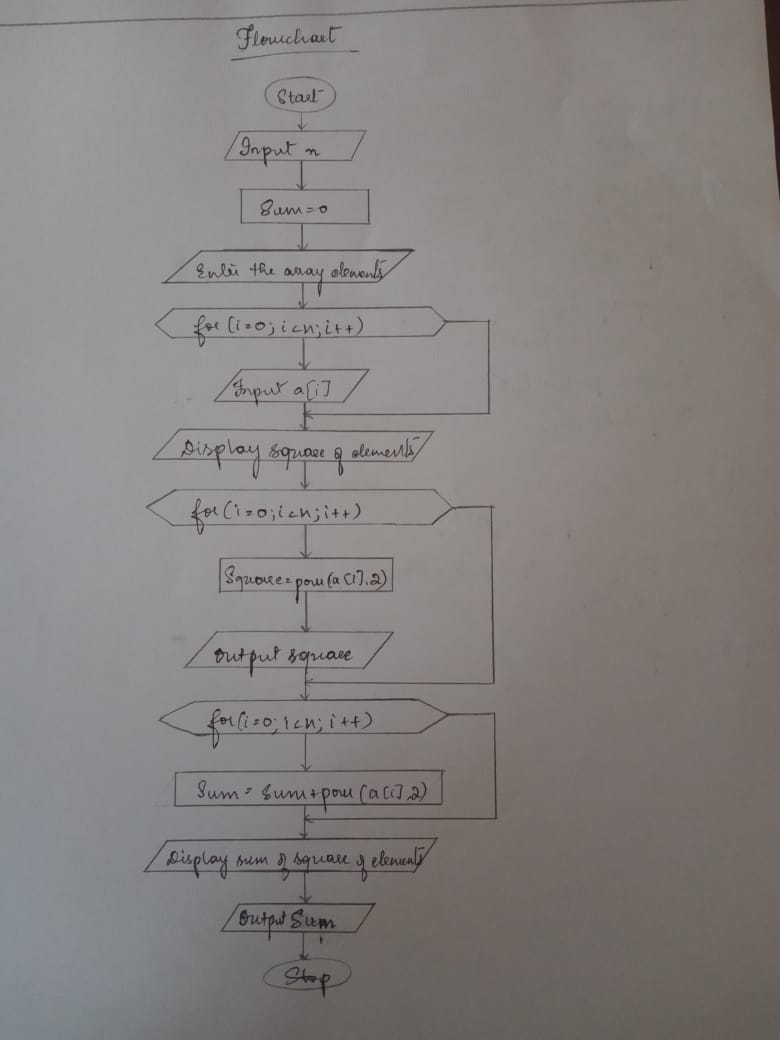 Flowchart
Start
Input n
Sum=0
Enter the array elements
for(i=0;i<n;i++)
Input a[i]
Display square of elements
for(i=0;i<n;i++)
Square=pow(a[i],2)
Output square
for(i=0;i<n;i++)
Sum=Sum+pow(a[i],2)
Display sum of square of elements
Output Sum
Stop